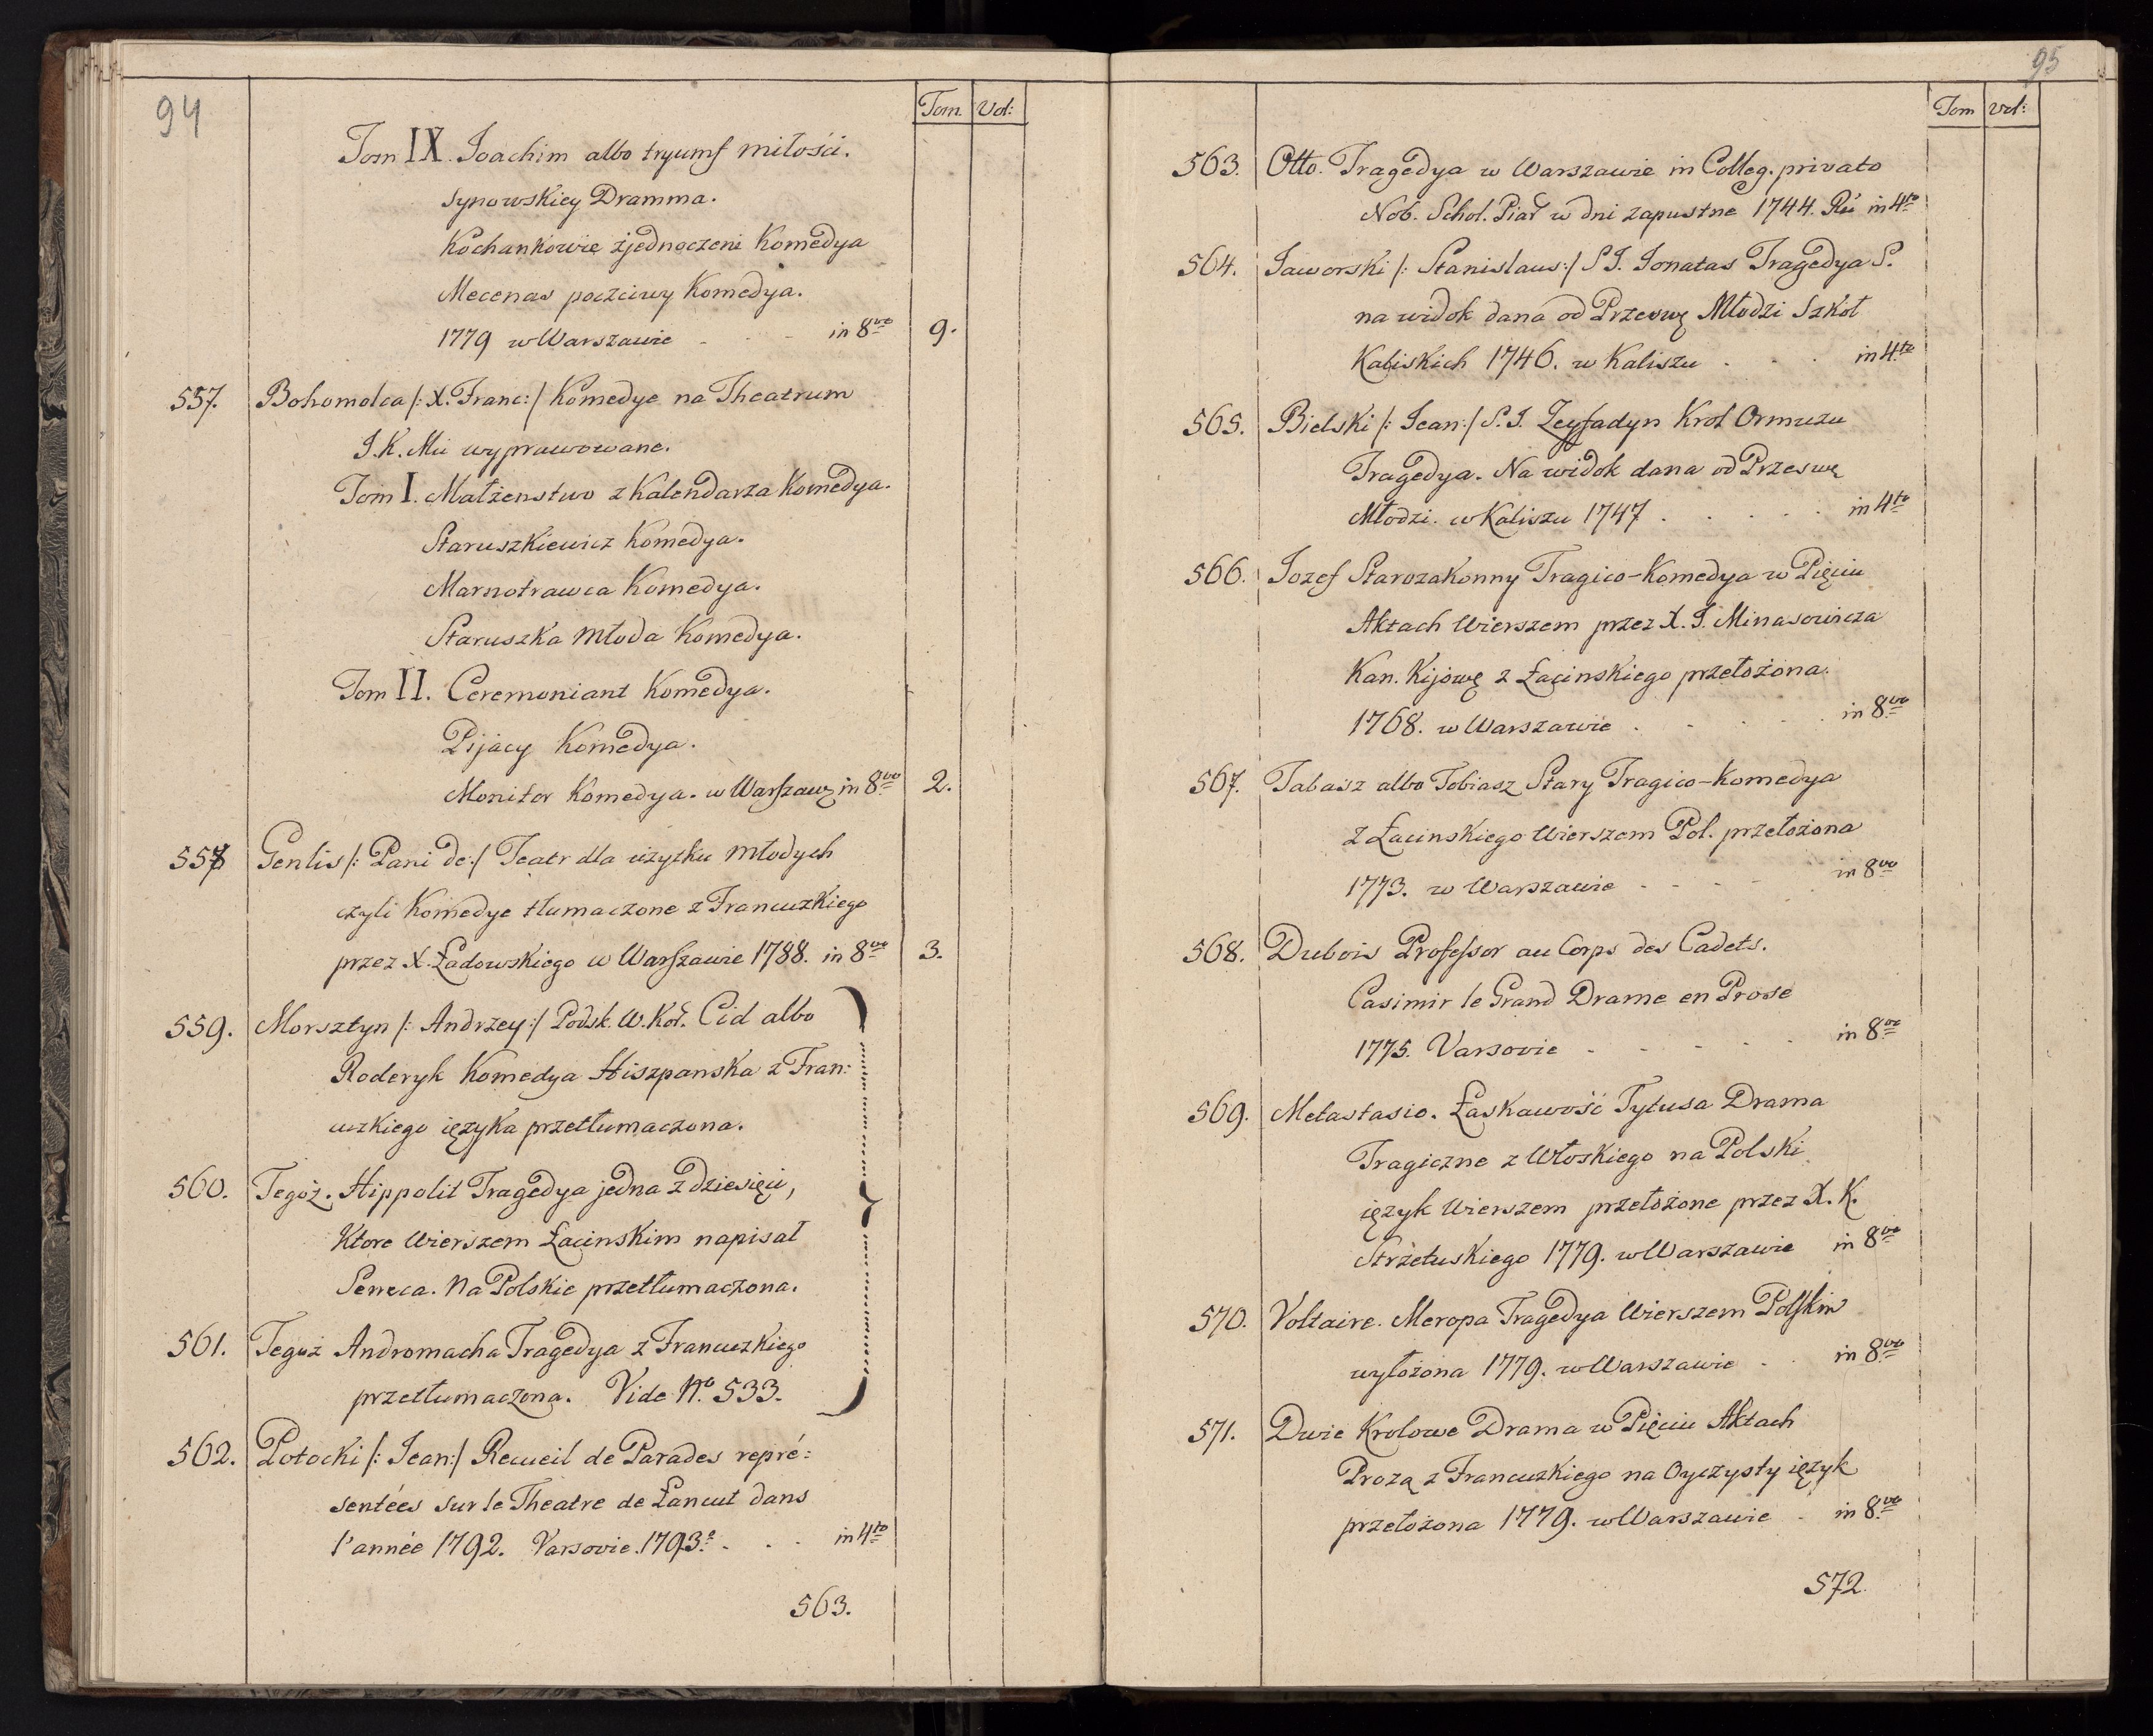 94
Tom. Vol:
Tom IX. Joachim albo tryumf miłości.
synowskiey Dramma.
Kochankowie zjednoczeni Komedya
Mecenas poczciwy Komedya.
1779 w Warszawie - - - in 8vo 9.
557. Bohomolca /: X. Franc: / Komedye na Theatrum
J. K. Mci wyprawowane.
Tom I. Małżenstwo z Kalendarza Komedya.
Staruszkiewicz Komedya.
Marnotrawca Komedya.
Staruszka młoda Komedya.
Tom II. Ceremoniant Komedya.
Pijacy Komedya.
Monitor Komedya. w Warszawę in 8vo 2.
558 Genlis /: Pani de :/ Teatr dla użytku młodych
czyli Komedye tłumaczone z Francuzkiego
przez X. Ładowskiego w Warszawie 1788. in 8vo 3.
559. Morsztyn /: Andrzey :/ Podsk. W. Kor. Cid albo
Roderyk Komedya Hiszpanska z Fran:
cuzkiego ięzyka przetłumaczona.
560. Tegoż. Hippolit Tragedya jedna z dziesięci,
Ktore Wierszem Łacinskim napisał
Seneca. Na Polskie przetłumaczona.
561. Tegoż Andromacha Tragedya z Francuzkiego
przetłumaczona. Vide No. 533.
562. Potocki /: Jean :/ Recueil de Parades repré:
sentées sur le Theatre de Łancut dans
l'année 1792. Varsovie. 1793. - . . in 4to
563.
95
Tom Vol:
563. Otto. Tragedya w Warszawie in Colleg. privato
Nob. Schol. Piar w dni zapustne 1744. in 4to
564. Jaworski /: Stanislaus :/ S J. Jonatas Tragedya S.
na widok dana od Przeswę Młodzi Szkoł
Kaliskich 1746. w Kaliszu . . . in 4to
565. Bielski /: Jean :/ S. J. Zeyfadyn Krol Ormuzu
Tragedya. Na widok dana od Przeswę
Młodzi. w Kaliszu 1747 . . . . . in 4to
566. Jozef Starozakonny Tragico-Komedya w Pięciu
Aktach Wierszem przez X. J. Minasowicza
Kan. Kijowę z Łacinskiego przełożona.
1768. w Warszawie . - . . . in 8vo
567. Tabasz albo Tobiasz Stary Tragico-Komedya
z Łacinskiego Wierszem Pol. przełożona
1773. w Warszawie - - - - in 8vo
568. Dubois Professor au Corps des Cadets.
Casimir le Grand Drame en Prose
1775. Varsovie - - - - . in 8vo
569. Metastasio. Łaskawość Tytusa Drama
Tragiczne z Włoskiego na Polski
ięzyk Wierszem przełożone przez X. K.
Strzetuskiego 1779. w Warszawie in 8vo
570. Voltaire. Meropa Tragedya Wierszem Polskim
wyłożona 1779. w Warszawie - . in 8vo
571. Dwie Krolowe Drama w Pięciu Aktach
Prozą z Francuzkiego na Oyczysty ięzyk
przełożona 1779. w Warszawie . in 8vo
572.